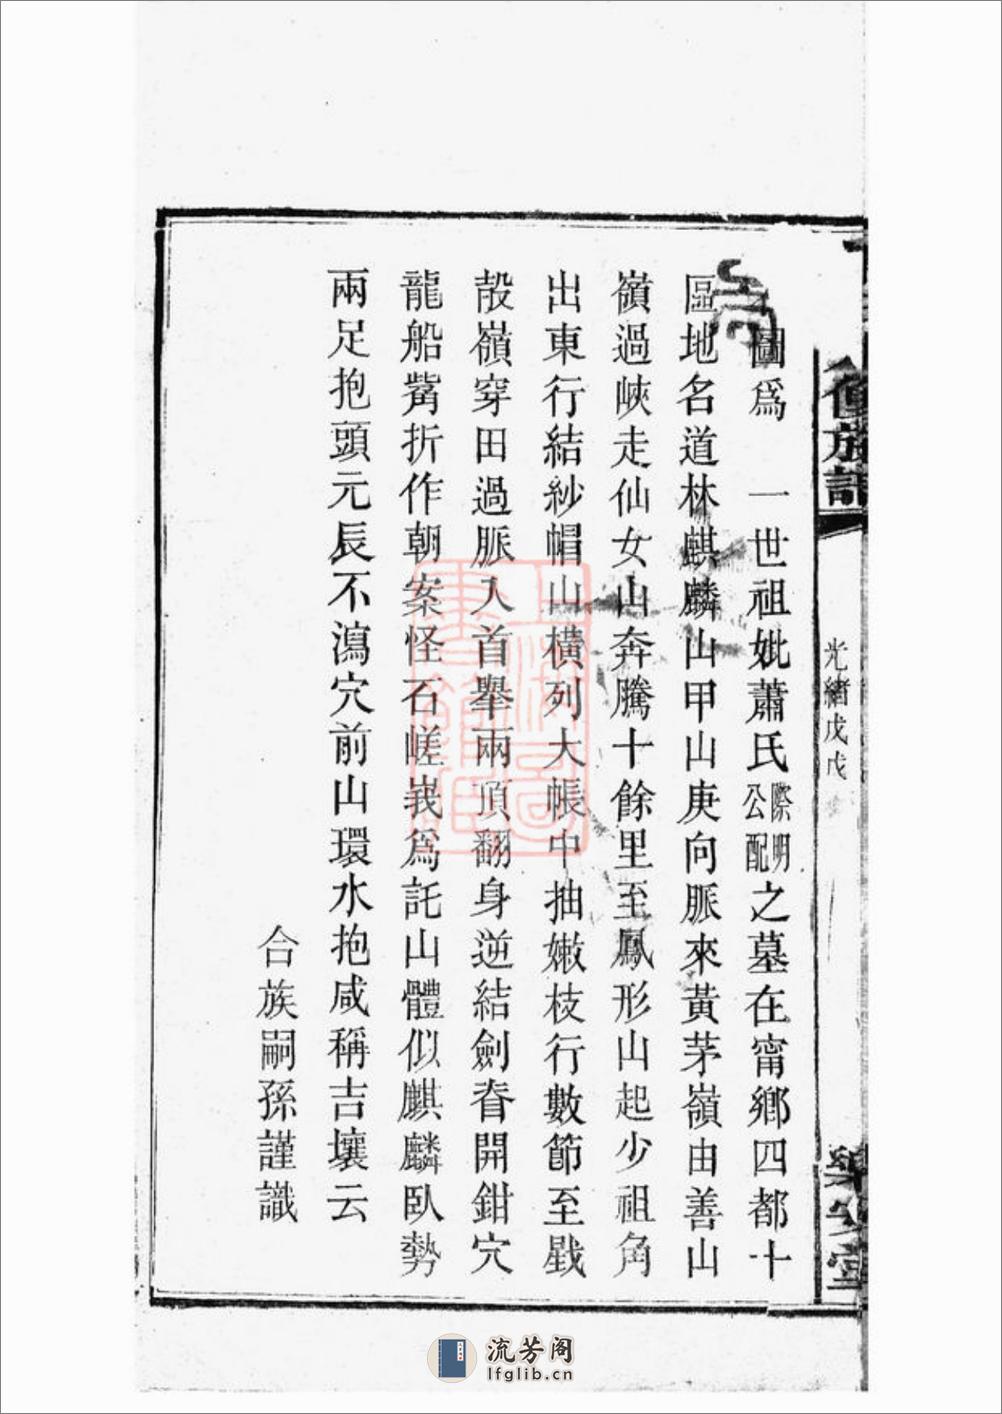 圖為　一世祖妣蕭氏際明公配之墓在甯鄉四都十
區地名道林麒麟山甲山庚向脈來黃茅嶺由善山
嶺過峽走仙女山奔騰十餘里至鳳形山起少祖角
出東行結紗帽山橫列大帳中抽嫩枝行數節至戥
嶺穿田過脈入首舉兩頂翻身逆結劍脊開鉗穴
龍船觜折作朝案怪石嵯峩為託山體似麒麟臥勢
兩足抱頭元辰不瀉穴前山環水抱咸稱吉壤云
合族嗣孫謹識
族譜
光緒戊戌
樂安堂
上海圖書館藏
流芳阁
lfglib.cn